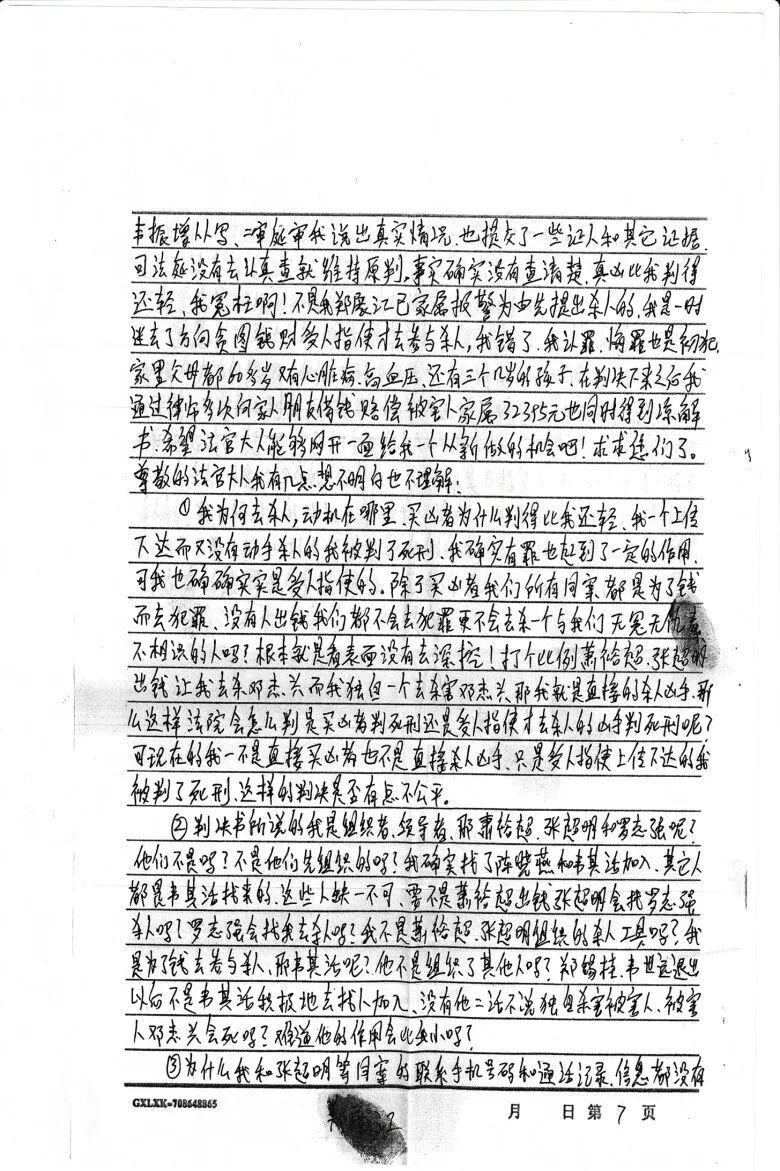 韦振增从写、二审庭审我说出真实情况、也提交了一些证人和其它证据、
可法庭没有去认真查就维持原判。事实确实没有查清楚、真凶比我判得
还轻、我冤枉啊！不是我郑展江已家属报警为由先提出杀人的、我是一时
迷去了方向贪图钱财受人指使才去参与杀人、我错了、我认罪、悔罪也是初犯、
家里父母都60多岁又有心脏病、高血压、还有三个几岁的孩子、在判决下来之后我
通过律师多次向家人朋友借钱赔偿被害人家属32395元也同时得到谅解
书、希望法官大人能够网开一面给我一个从新做的机会吧！求求您们了。
尊敬的法官大人我有几点想不明白也不理解：
①我为何去杀人，动机在哪里、买凶者为什么判得比我还轻、我一个上传
下达而又没有动手杀人的我被判了死刑、我确实有罪也起到了一定的作用、
可我也确确实实是受人指使的。除了买凶者我们所有同案都是为了钱
而去犯罪、没有人出钱我们都不会去犯罪更不会去杀一个与我们无冤无仇
不相识的人吗？根本就是看表面没有去深挖！打个比例萧给超、张超明
出钱让我去杀邓杰兴而我独自一个去杀害邓杰兴、那我就是直接的杀人凶手、那
么这样法院会怎么判是买凶者判死刑还是受人指使才去杀人的凶手判死刑呢？
可现在的我一不是直接买凶者也不是直接杀人凶手、只是受人指使上传下达的我
被判了死刑、这样的判决是否有点不公平。
②判决书所说的我是组织者、领导者、那萧给超、张超明和罗志强呢？
他们不是吗？不是他们先组织的吗？我确实找了陈晓燕和韦其活加入、其它人
都是韦其活找来的、这些人缺一不可、要不是萧给超出钱张超明会找罗志强
杀人吗？罗志强会找我去杀人吗？我不是萧给超、张超明组织的杀人工具吗？我
是为了钱去参与杀人、那韦其活呢？他不是组织了其他人吗？郑锡桂、韦世远退出
以后不是韦其活积极地去找人加入、没有他二话不说独自杀害被害人、被害
人邓杰兴会死吗？难道他的作用会比我小吗？
③为什么我和张超明等同案的联系手机号码和通话记录、信息都没有
GXLXK-708648865 月 日第7页